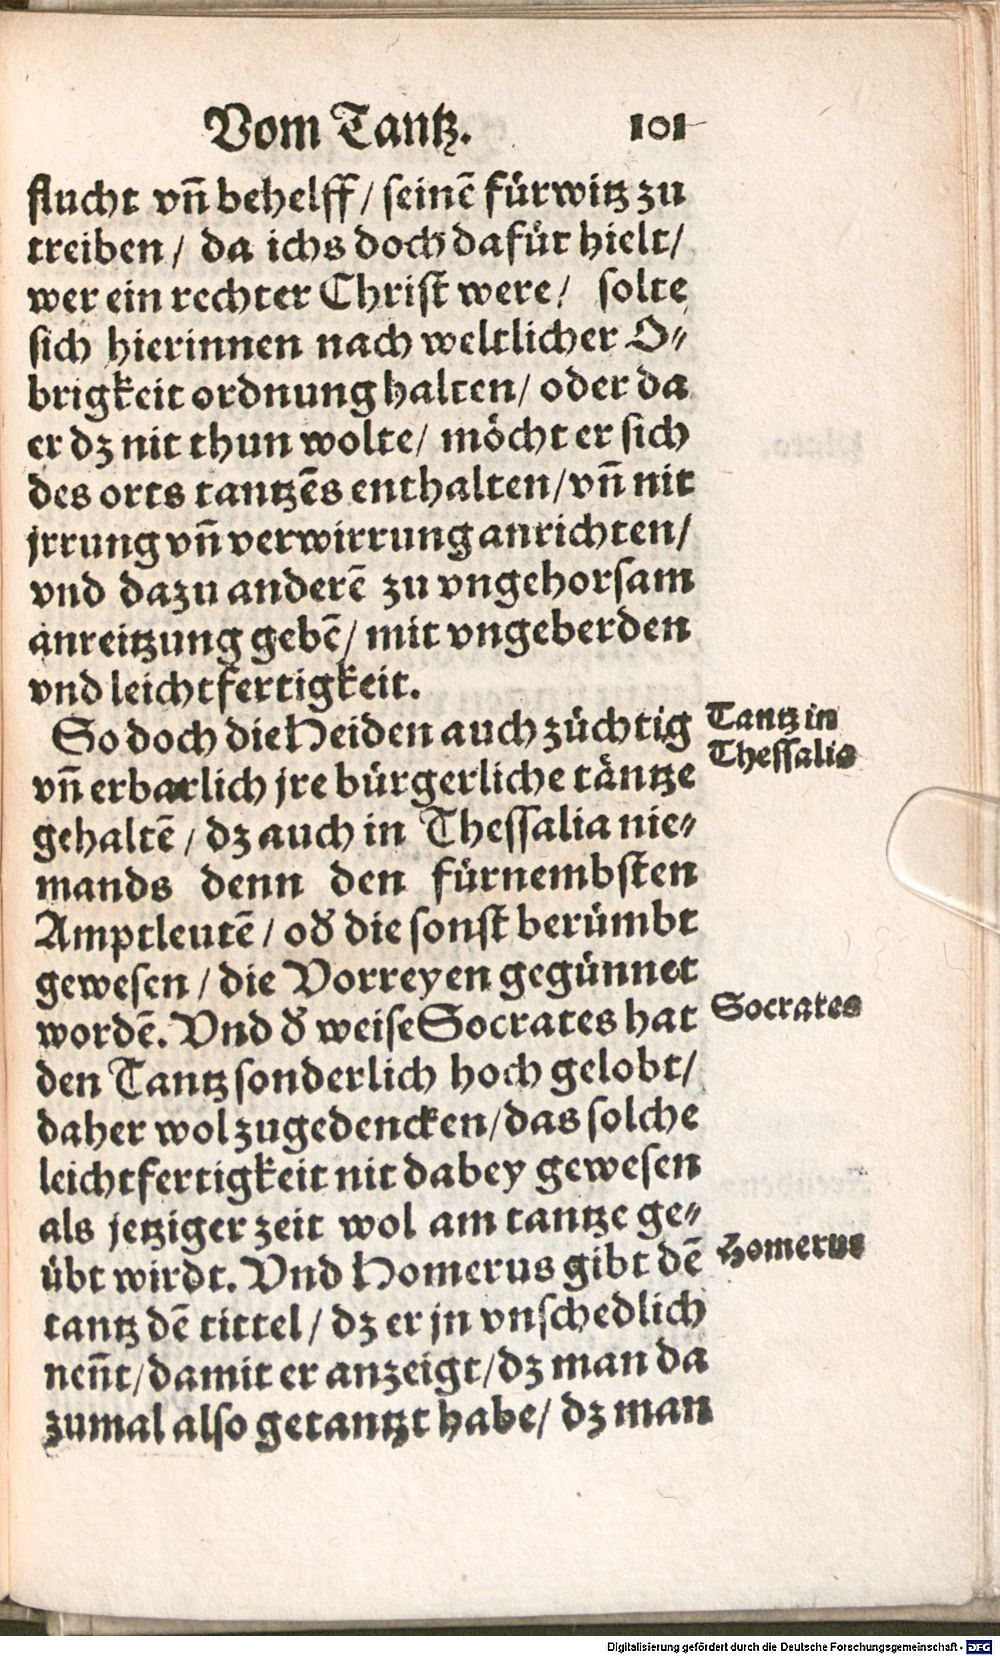 Vom Tantz. 101
flucht vñ behelff / seinẽ fürwitz zu
treiben / da ichs doch dafür hielt /
wer ein rechter Christ were / solte
sich hierinnen nach weltlicher O-
brigkeit ordnung halten / oder da
er dz nit thun wolte / möcht er sich
des orts tantzẽs enthalten / vñ nit
jrrung vñ verwirrung anrichten /
vnd dazu anderẽ zu vngehorsam
anreitzung gebẽ / mit vngeberden
vnd leichtfertigkeit.
So doch die Heiden auch züchtig
vñ erbarlich jre bürgerliche täntze
gehaltẽ / dz auch in Thessalia nie-
mands denn den fürnembsten
Amptleutẽ / oď die sonst berümbt
gewesen / die Vorreyen gegünnet
wordẽ. Vnd ď weise Socrates hat
den Tantz sonderlich hoch gelobt /
daher wol zugedencken / das solche
leichtfertigkeit nit dabey gewesen
als jetziger zeit wol am tantze ge-
übt wirdt. Vnd Homerus gibt dẽ
tantz dẽ tittel / dz er jn vnschedlich
neñt / damit er anzeigt / dz man da
zumal also getantzt habe / dz man
Tantz in
Thessalia
Socrates
Homerus
Digitalisierung gefördert durch die Deutsche Forschungsgemeinschaft - DFG